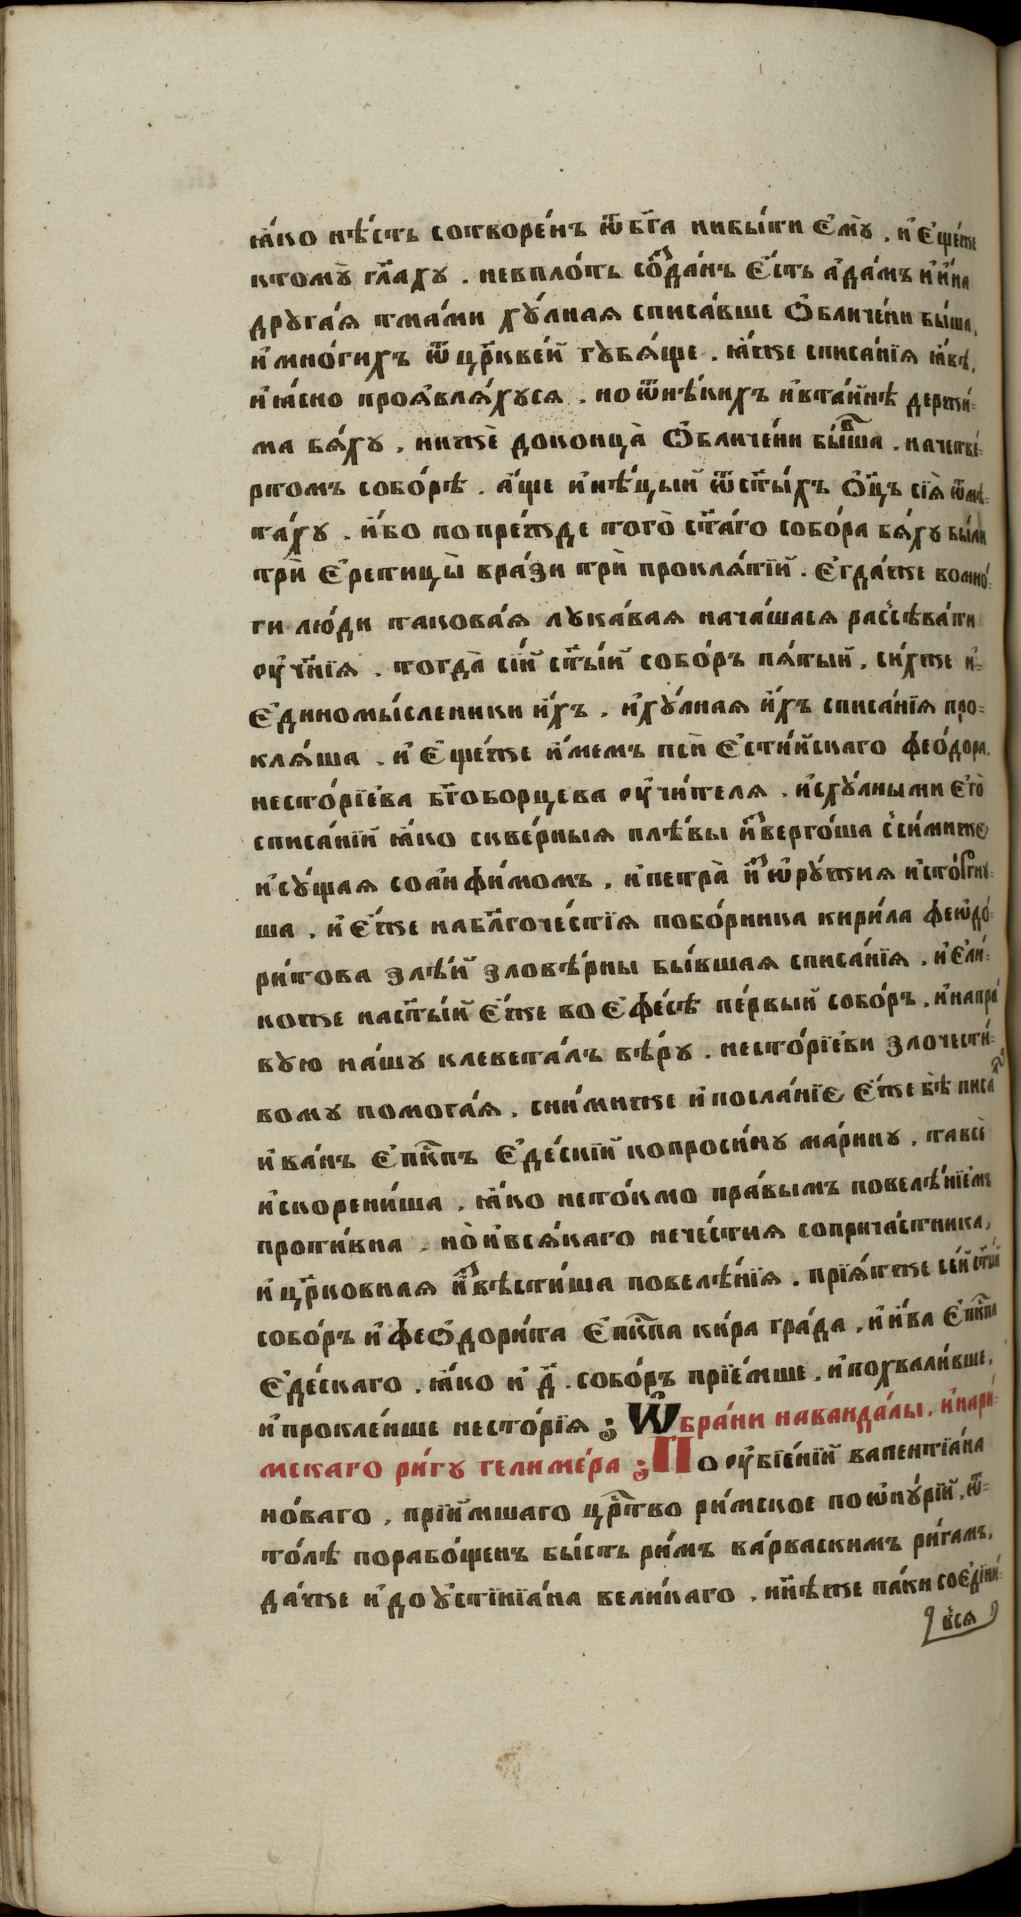 ꙗ҆́ко нѣ́сть сотворе́нъ ѿ бг҃а ни бы́ти є҆мꙋ̀ . и҆ є҆ще́же
ктомꙋ̀ гл҃ахꙋ . не в пло́ть созда́нъ є҆́сть а҆да́мъ и҆ и҆́на
дрꙋга́ѧ тма́ми хꙋ́лнаѧ списа́вше ѡ҆бличе́ни бы́ша,
и҆ мно́гихъ ѿ цр҃кве́й гꙋбѧ́ще . ꙗ҆́же списа́нїѧ ꙗ҆́вѣ,
и҆ ꙗ҆́сно проѧвлѧ́хꙋсѧ . но ѿ нѣ́кихъ и҆ в та́инѣ держи́-
ма бѧ́хꙋ . нижѐ до конца̀ ѡ҆бличе́ни бы́вша . на четве́-
ртомъ собо́рѣ . а҆́ще и҆ нѣ́цый ѿ ст҃ы́хъ ѻ҆ц҃ъ сїѧ̀ ѿмѣ-
та́хꙋ . и҆́бо по пре́жде того̀ ст҃а́го собо́ра бѧ́хꙋ бы́ли
трѝ є҆ретицы̀ вра́зи трѝ проклѧ́тїй . є҆гда́же во мнѡ́-
ги лю́ди такова́ѧ лꙋка́ваѧ нача́шасѧ разсѣва́ти
ᲂу҆че́нїѧ . тогда̀ сїй ст҃ы́й собо́ръ пѧ́тый, си́хже и҆-
є҆диномы́сленики и҆́хъ . и҆ хꙋ́лнаѧ и҆́хъ списа́нїѧ про-
клѧ́ша . и҆ є҆ще́же и҆́мемъ псѝ є҆сти́йскаго ѳео́дора,
несто́рїева бг҃оборцева ᲂу҆чи́телѧ . и҆ с хꙋ́лными є҆гѡ̀
списа́нїй ꙗ҆́ко скве́рныѧ плѣ́вы и҆зверго́ша с си́миже
и҆ сꙋ́щаѧ со а҆нѳи́момъ . и҆ петра̀ и҆ зѡ҆рꙋ́жиѧ и҆сто́ргнꙋ-
ша . и҆ є҆́же на бл҃гоче́стїѧ побо́рника кири́ла ѳеѡдо́-
ри́това злѣ́й зловѣ́рны бы́вшаѧ списа́нїѧ . и҆ є҆ли́-
коже на ст҃ы́й є҆́же во є҆фе́сѣ пе́рвый собо́ръ . и҆ на пра́-
вꙋю на́шꙋ клевета́лъ вѣ́рꙋ . несто́рїеви злочести́-
вомꙋ помога́ѧ . с ни́миже и҆ посла́нїе є҆́же бѣ̀ писа́лъ
и҆ва́нъ є҆пⷭ҇кпъ є҆де́скїй ко проси́нꙋ ма́ринꙋ, та всѝ
и҆скорени́ша . ꙗ҆́ко не то́кмо пра́вымъ повелѣ́нїемъ
проти́вна . но̀ и҆ всѧ́каго нече́стиѧ соприча́стника,
и҆ цр҃ко́внаѧ и҆звѣсти́ша повелѣ́нїѧ . прїѧ́тже се́й ст҃ы́й
собо́ръ и҆ ѳеѡдори́та є҆пⷭ҇кпа ки́ра гра́да, и҆ и҆́ва є҆пⷭ҇кпа
є҆де́скаго . ꙗ҆́ко и҆ д҃ . собо́ръ прїе́мше . и҆ похвали́вше,
и҆ прокле́нше несто́рїѧ ; Ѡ҆ бра́ни на ванда́лы, и҆ на ри́-
мскаго ри́гꙋ гелиме́ра ; По ᲂу҆бїе́нїй валентїа́на
но́ваго, прїи́мшаго црⷭ҇тво ри́мское по ѡ҆нꙋ́рїй, ѿ-
то́лѣ порабо́щенъ бы́сть ри́мъ ва́рваскимъ ри́гамъ,
да́же и҆ до ꙋ҆стїнїа́на вели́каго . нн҃ѣже па́ки соедїни́-
всѧ